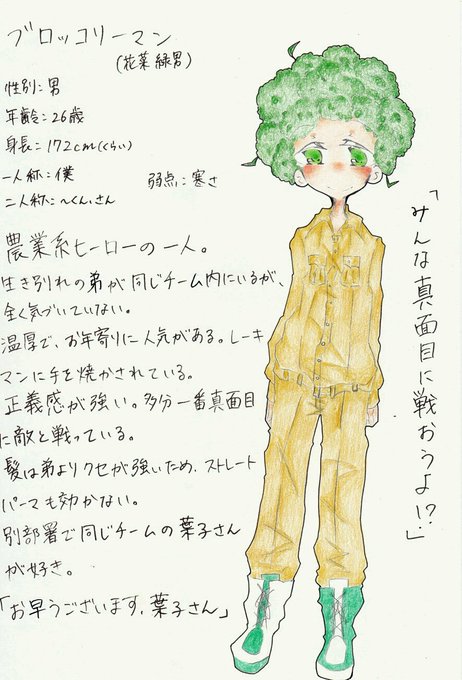 ブロッコリーマン
(花菜 緑男)
性別:男
年齢:26歳
身長:172cm(くらい)
一人称:僕
弱点:寒さ
二人称:〜くん、さん
農業系ヒーローの一人。
生き別れの弟が同じチーム内にいるが、
全く気づいていない。
温厚で、お年寄りに人気がある。レーキ
マンに手を焼かされている。
正義感が強い。多分一番真面目
に敵と戦っている。
髪は弟よりクセが強いため、ストレート
パーマも効かない。
別部署で同じチームの葉子さん
が好き。
「お早うございます、葉子さん」
「みんな真面目に戦おうよ!?」